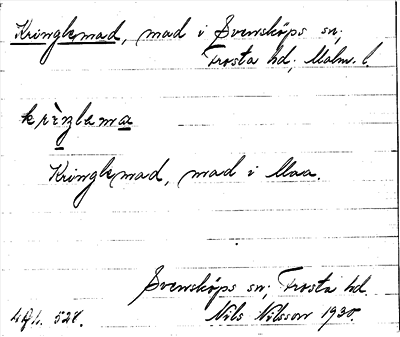 Kringlemad, mad i Svensköps sn;
Frosta hd; Malm. l.
krìŋlama
Kringlemad, mad i Maa.
Svensköps sn; Frosta hd.
528. Nils Nilsson 1930.